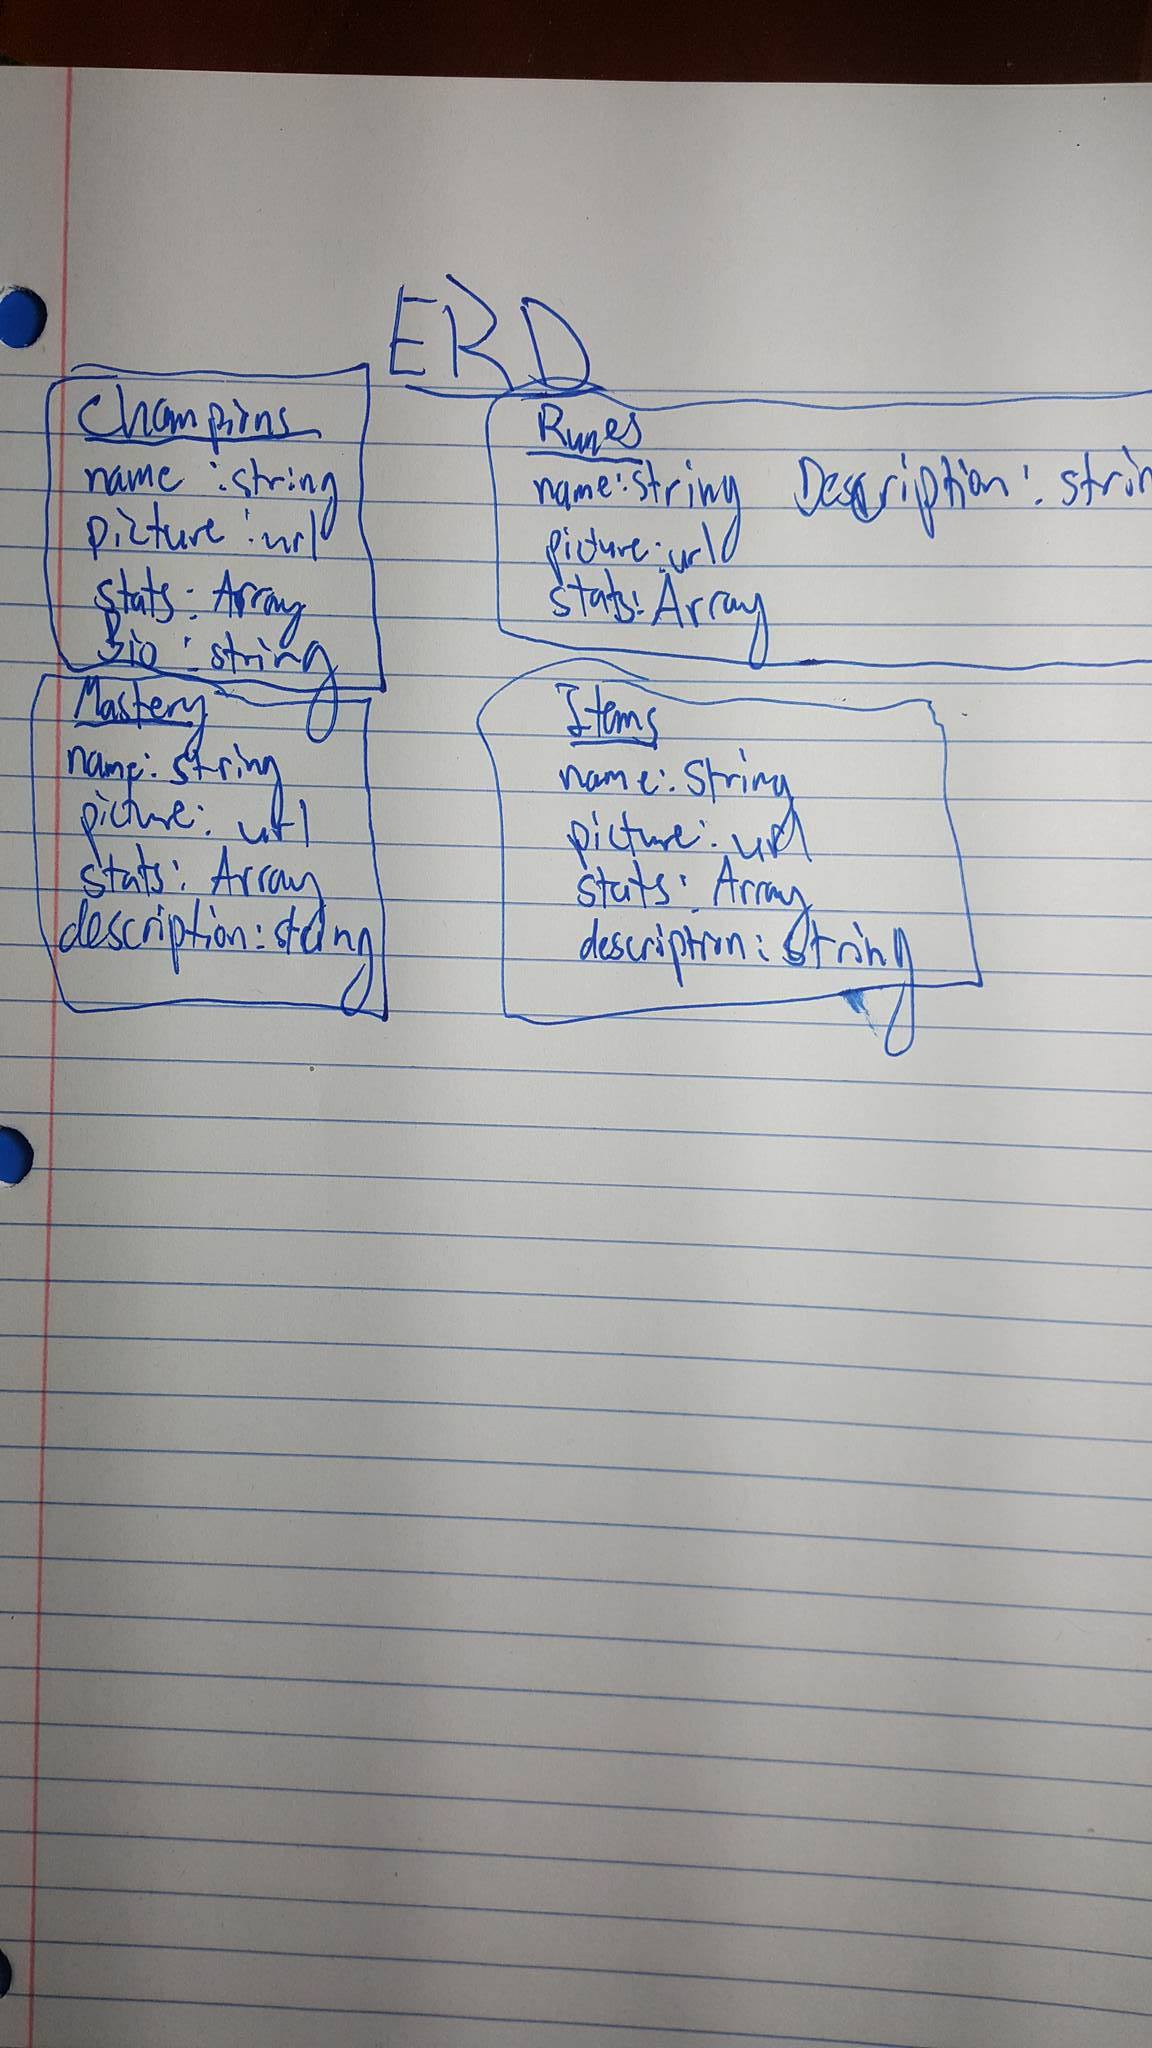 ERD
Champions
name : string
picture : url
stats : Array
Bio : string
Runes
name : string Description : strin
picture : url
stats : Array
Mastery
name : string
picture : url
stats : Array
description : string
Items
name : String
picture : url
stats : Array
description : string